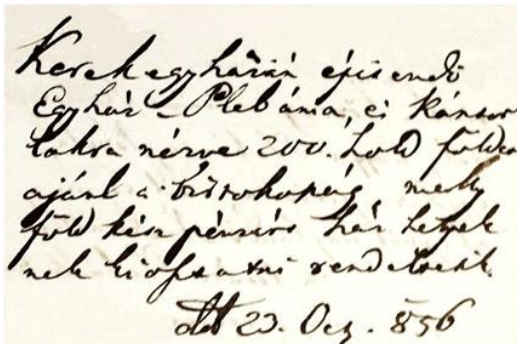 Kerekegyházán építendő
Egyház, Plebánia, és Kántor
lakra nézve 200. hold földet
ajánl a birtokosság mely
föld kész pénzért ház helyek
nek kiosztatni rendeltetik
23. Dez. 856